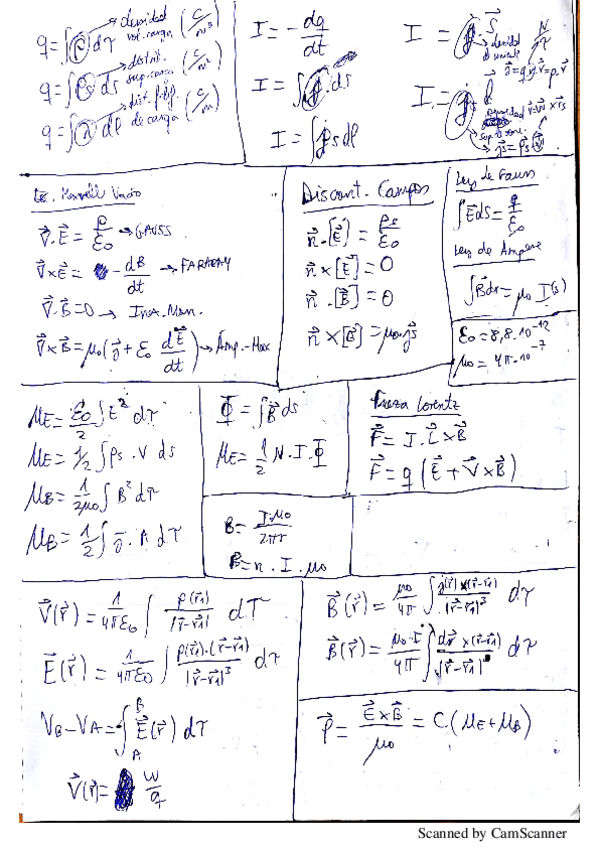 q = ∫ρ dτ → densidad vol. carga (C/m³)
q = ∫ρs ds → distrib. sup. carga (C/m²)
q = ∫λ dl → de carga (C/m)
I = - dq/dt
I = ∫j⃗ . ds
I = ∫js dl
I = j⃗ . S⃗
densidad
I = js . l⃗
Ec. Maxwell Vacío
∇⃗.E⃗ = ρ/ε0 → GAUSS
∇⃗×E⃗ = - dB/dt → FARADAY
∇⃗.B⃗ = 0 →
∇⃗×B⃗ = μ0(j⃗ + ε0 dE⃗/dt) → Amp.-Max
Discont. Campos
n⃗.[E⃗] = ρs/ε0
n⃗×[E⃗] = 0
n⃗.[B⃗] = 0
n⃗×[B⃗] = μ0.js
Ley de Gauss
∫E⃗ds = q/ε0
Ley de Ampere
∫B⃗ds = μ0 I(s)
ε0 = 8,8.10⁻¹²
μ0 = 4π.10⁻⁷
μE = ε0/2 ∫E² dτ
μE = 1/2 ∫ρs . V ds
μB = 1/2μ0 ∫B² dτ
μB = 1/2 ∫j⃗ . A dτ
Φ = ∫B⃗ ds
μE = 1/2 N . I . Φ
B = I.μ0/2πr
B = n . I . μ0
Fuerza Lorentz
F⃗ = I . L⃗ × B⃗
F⃗ = q (E⃗ + V⃗ × B⃗)
V⃗(r⃗) = 1/4πε0 ∫ ρ(r⃗1)/|r⃗-r⃗1| dτ
E⃗(r⃗) = 1/4πε0 ∫ ρ(r⃗1).(r⃗-r⃗1)/|r⃗-r⃗1|³ dτ
VB - VA = ∫A^B E⃗(r⃗) dτ
V⃗(r) = W/q
B⃗(r⃗) = μ0/4π ∫ j(r⃗1)×(r⃗-r⃗1)/|r⃗-r⃗1|³ dτ
B⃗(r⃗) = μ0.I/4π ∫ dr⃗ ×(r⃗-r⃗1)/|r⃗-r⃗1|³ dτ
P⃗ = E⃗×B⃗/μ0 = C.(μE+μB)
Scanned by CamScanner